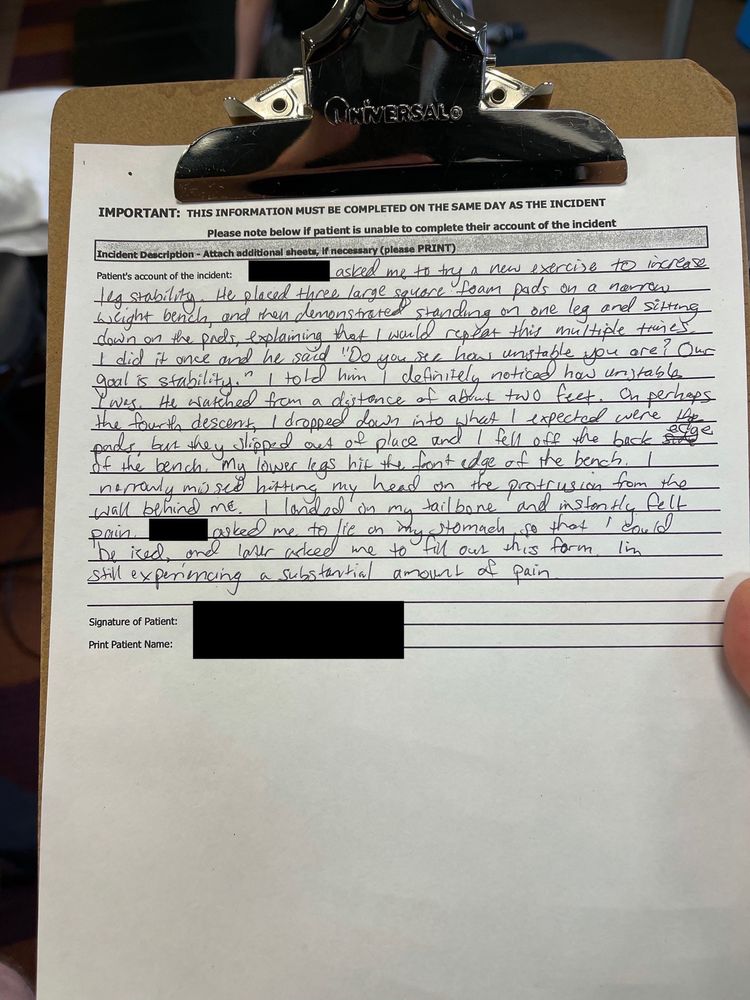 UNIVERSAL®
IMPORTANT: THIS INFORMATION MUST BE COMPLETED ON THE SAME DAY AS THE INCIDENT
Please note below if patient is unable to complete their account of the incident
Incident Description - Attach additional sheets, if necessary (please PRINT)
Patient's account of the incident: asked me to try a new exercise to increase
leg stability. He placed three large square foam pads on a narrow
weight bench, and then demonstrated standing on one leg and sitting
down on the pads, explaining that I would repeat this multiple times.
I did it once and he said "Do you see how unstable you are? Our
goal is stability." I told him I definitely noticed how unstable
I was. He watched from a distance of about two feet. On perhaps
the fourth descent, I dropped down into what I expected were the
pads, but they slipped out of place and I fell off the back edge
of the bench. My lower legs hit the front edge of the bench. I
narrowly missed hitting my head on the protrusion from the
wall behind me. I landed on my tailbone and instantly felt
pain. asked me to lie on my stomach so that I could
be iced, and later asked me to fill out this form. I'm
still experiencing a substantial amount of pain.
Signature of Patient:
Print Patient Name: